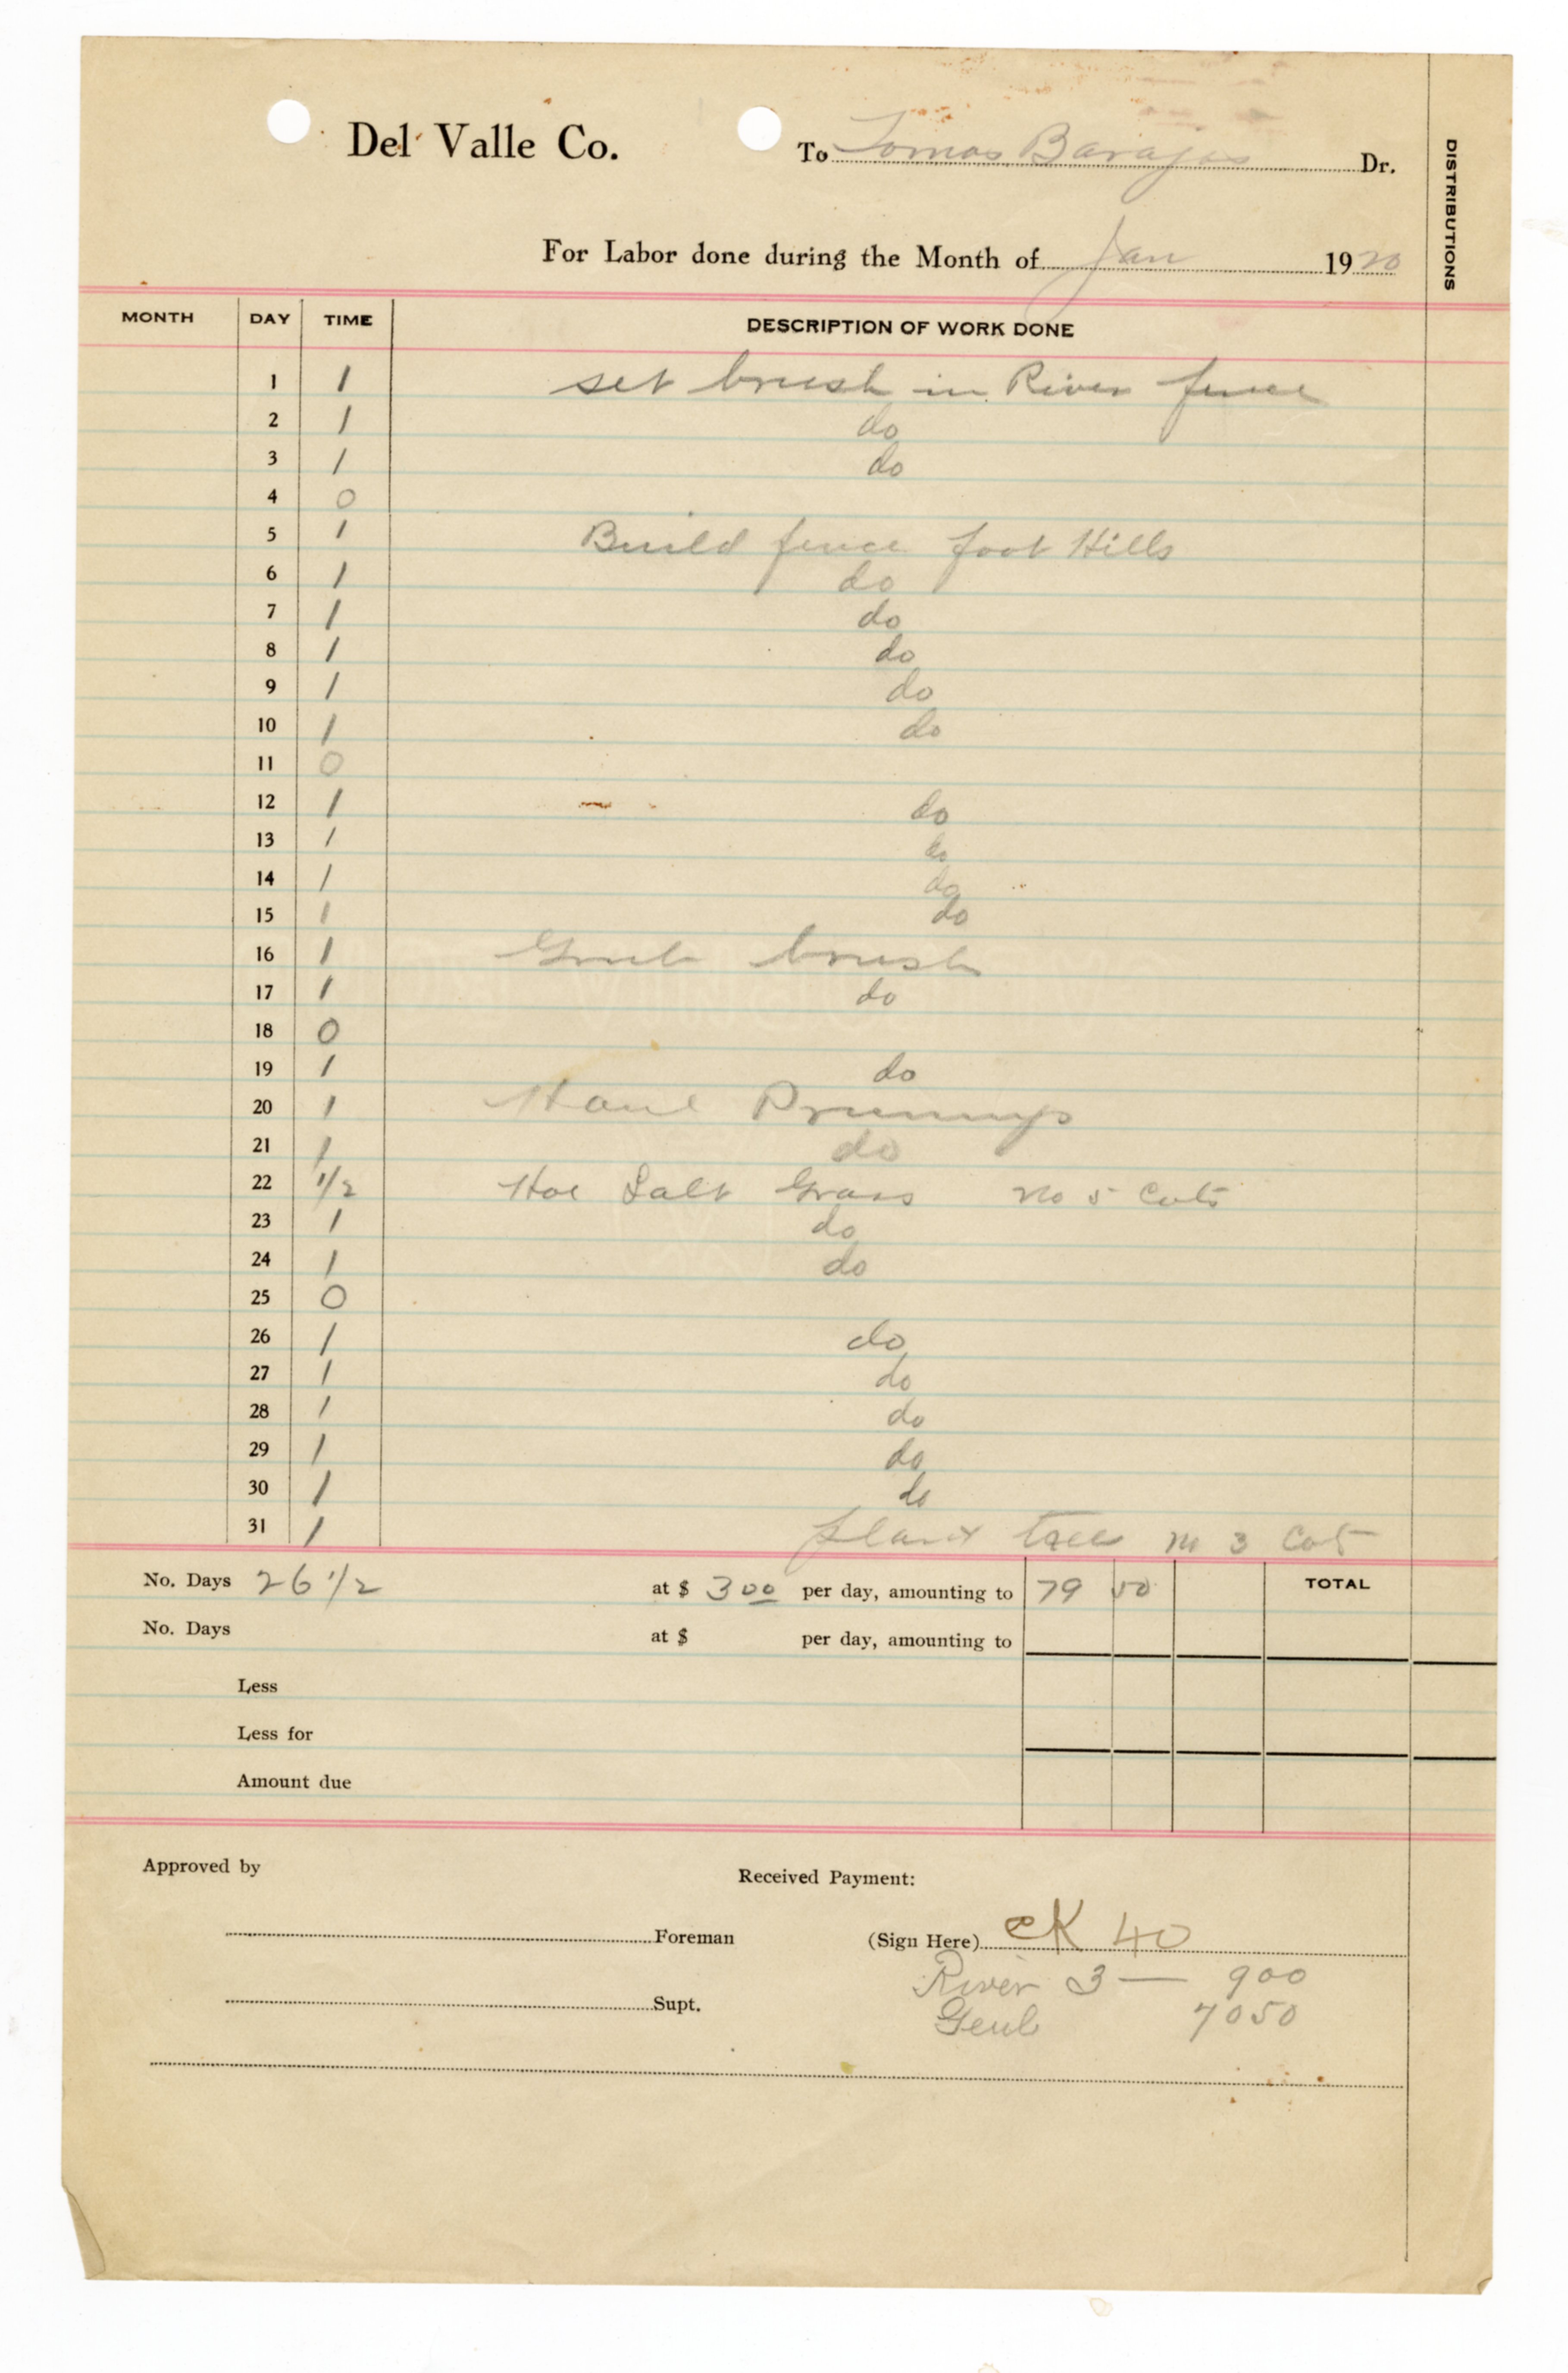 Del Valle Co. To Tomas Barajas Dr.
DISTRIBUTIONS
For Labor done during the Month of Jan 1920
MONTH DAY TIME DESCRIPTION OF WORK DONE
1 1 set brush in River fence
2 1 do
3 1 do
4 0
5 1 Build fence foot Hills
6 1 do
7 1 do
8 1 do
9 1 do
10 1 do
11 0
12 1 do
13 1 do
14 1 do
15 1 do
16 1 Grub brush
17 1 do
18 0
19 1 do
20 1 Haul Prunnys
21 1 do
22 1/2 Hoe Salt Grass No 5 Cots
23 1 do
24 1 do
25 0
26 1 do
27 1 do
28 1 do
29 1 do
30 1 do
31 1 plant trees no 3 Cot
No. Days 26 1/2 at $ 3 00 per day, amounting to 79 50 TOTAL
No. Days at $ per day, amounting to
Less
Less for
Amount due
Approved by Received Payment:
Foreman (Sign Here) CK 40
River 3 — 900
Supt. Genl 7050